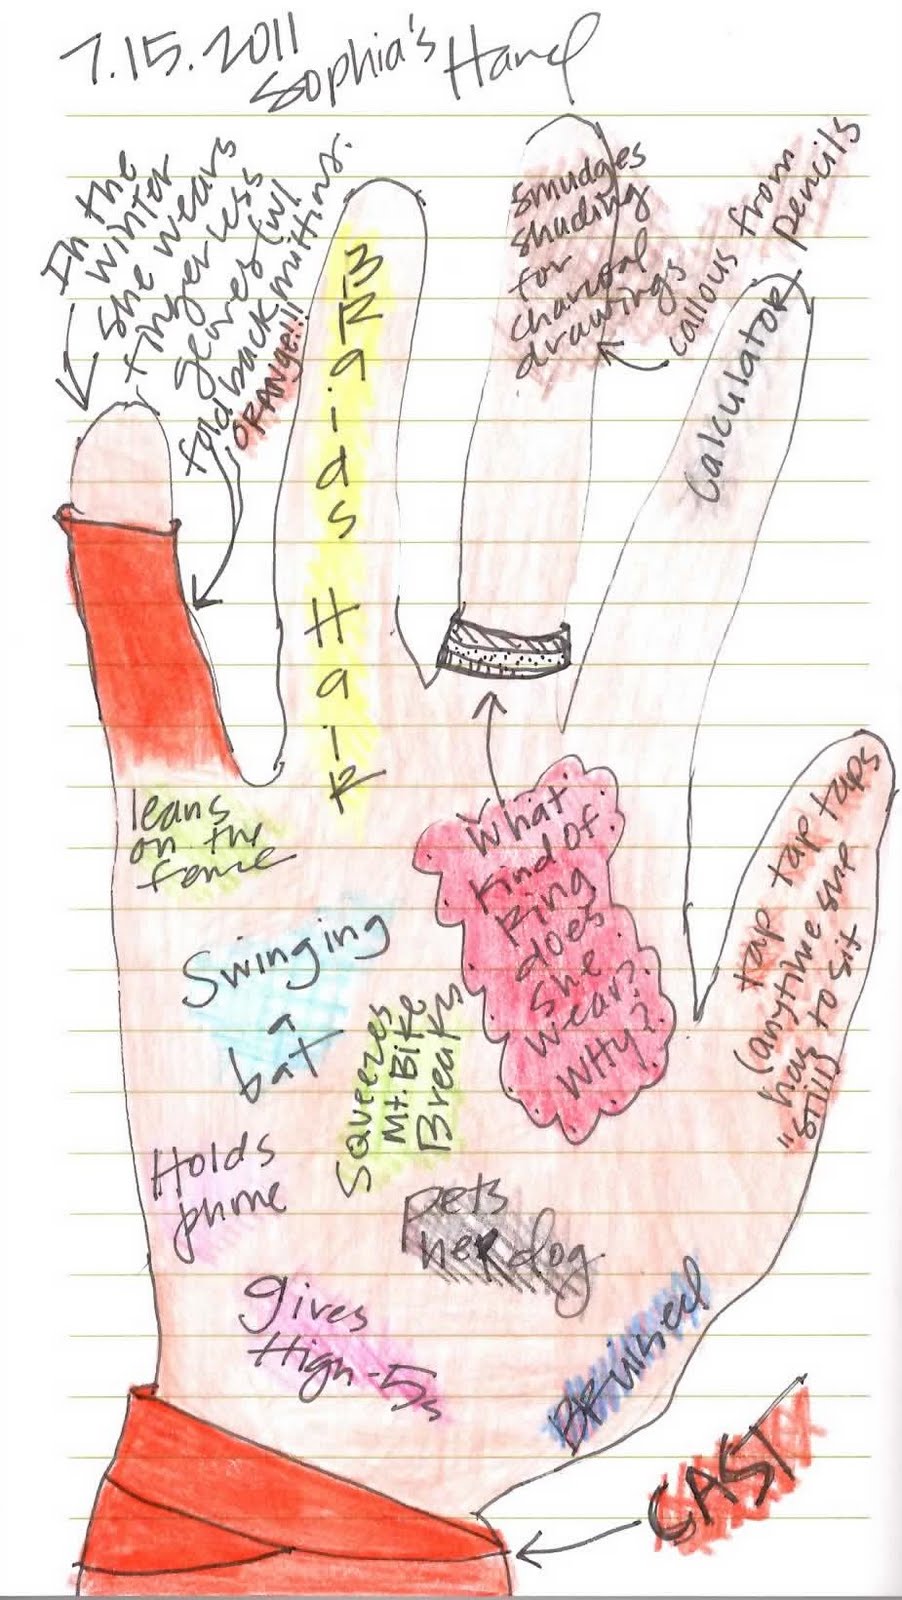 7.15.2011
Sophia's Hand
In the
winter
she wears
fingerless
gloves (w/
fold back mittins.
ORANGE!!!
BRaids HaiR
smudges
shading
for
charcoal
drawings
callous from
pencils
Calculator
leans
on the
fence
Swinging
a
bat
Squeezes
Mt. Bike
Breaks
What
kind of
Ring
does
she
wear?
WHy?
tap tap taps
(anytime she
has to sit
"still)
Holds
phone
pets
heR dog
gives
High-5s
BRuised
CAST